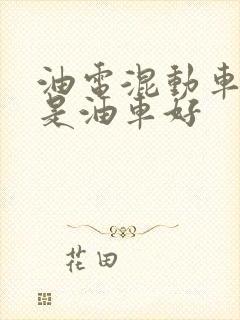 油電混動車
是油車好
花田